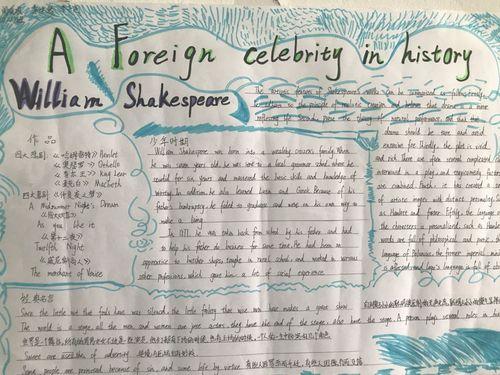 A Foreign celebrity in history
William Shakespeare
The artistic features of Shakespeare's works can be
to the principle of realistic creation and believes that drama is a mirror
reflecting life. Secondly, pose the theory of natural performance, and that the
drama should be sure and avoid
excessive Thirdly, the plot is vivid
and rich. There are often several complicated
interwoven in a play, and tragicomedy factors
are combined. Fourth, it has created a
of artistic images with distinct personality, such
as Hamlet and Fifthly, the language of
the characters is personalized, such as Hamlet's
words are full of philosophical and poetic
language of Polonius, the former imperial
is affected and language is full of
作品
四大悲剧:《哈姆雷特》Hamlet
《奥赛罗》Othello
《李尔王》King Lear
《麦克白》Macbeth
四大喜剧:《仲夏夜之梦》
A Midsummer Night's Dream
《皆大欢喜》
As you like it
《第十二夜》
Twelfth Night
《威尼斯商人》
The merchant of Venice
少年时期
William Shakespeare was born into a wealthy citizen's family. When
he was seven years old, he was sent to a local grammar school where he
studied for six years and mastered the basic skills and knowledge of
writing. In addition, he also learned Latin and Greek. Because of his
father's bankruptcy, he failed to graduate and went on his own way to
make a living.
In he was taken back from school by his father and had
to help his father do business for some time. He had been an
apprentice to butcher shops, taught in rural schools and worked in various
other professions, which gave him a lot of social experience.
经典名言
Since the little wit that fools have was silenced, the little foolery that wise men have makes a great show.
The world is a stage, all the men and women are just actors, they have the end of the stage, also have the stage. A person plays several roles in
世界是一个舞台,所有的男男女女不过是一些演员,他们都有下场的时候,也都有上场的时候。一个人的一生中扮演着好几个角色
Sweet are uses the of adversity
Some people are promoted because of sin, and some fall by virtue. 有些人因罪恶而升迁,有些人因德行而没落